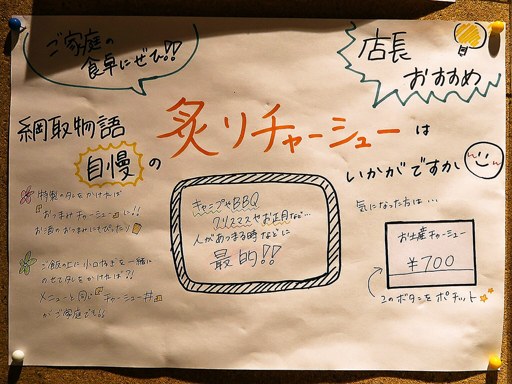 ご家庭の
食卓にぜひ!!
店長
おすすめ
綱取物語
自慢の
炙りチャーシューは
いかがですか
特製のタレをかければ
『おつまみチャーシュー』に!!
お酒のおつまみにもぴったり
ご飯の上に小口ねぎを一緒に
のせてタレをかければ?!
メニューと同じ『チャーシュー丼』
がご家庭でも
キャンプやBBQ
クリスマスやお正月など…
人があつまる時などに
最的!!
気になった方は…
お土産チャーシュー
¥700
このボタンをポチット